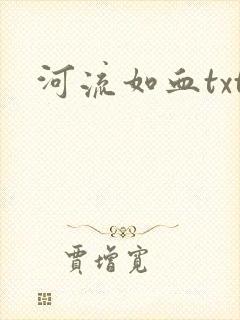 河流如血txt
賈增寬